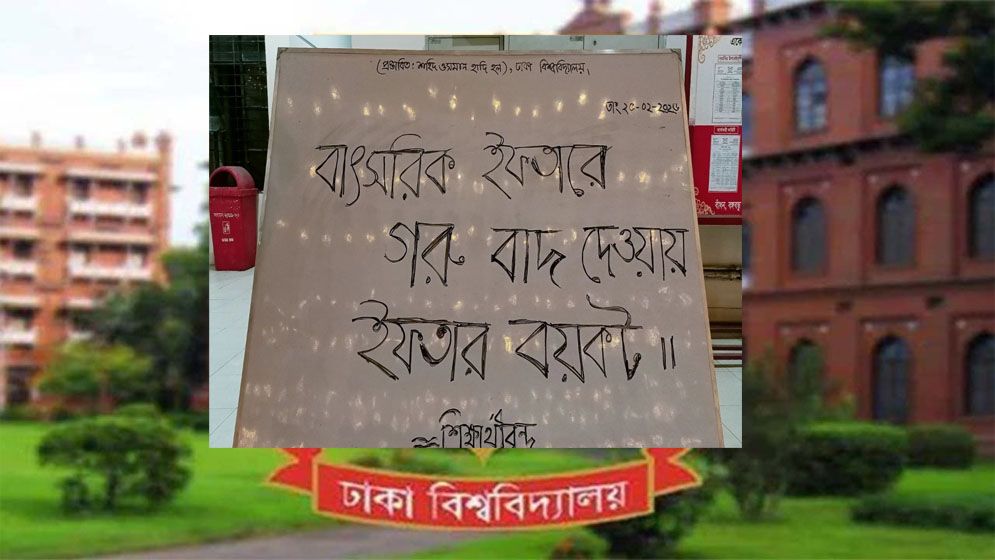 (প্রস্তাবিত: শহিদ ওসমান হাদি হল), ঢাকা বিশ্ববিদ্যালয়,
তাং ২০-০২-২০২৬
বাৎসরিক ইফতারে
গরু বাদ দেওয়ায়
ইফতার বয়কট ॥
≈ শিক্ষার্থীবৃন্দ
ঢাকা বিশ্ববিদ্যালয়